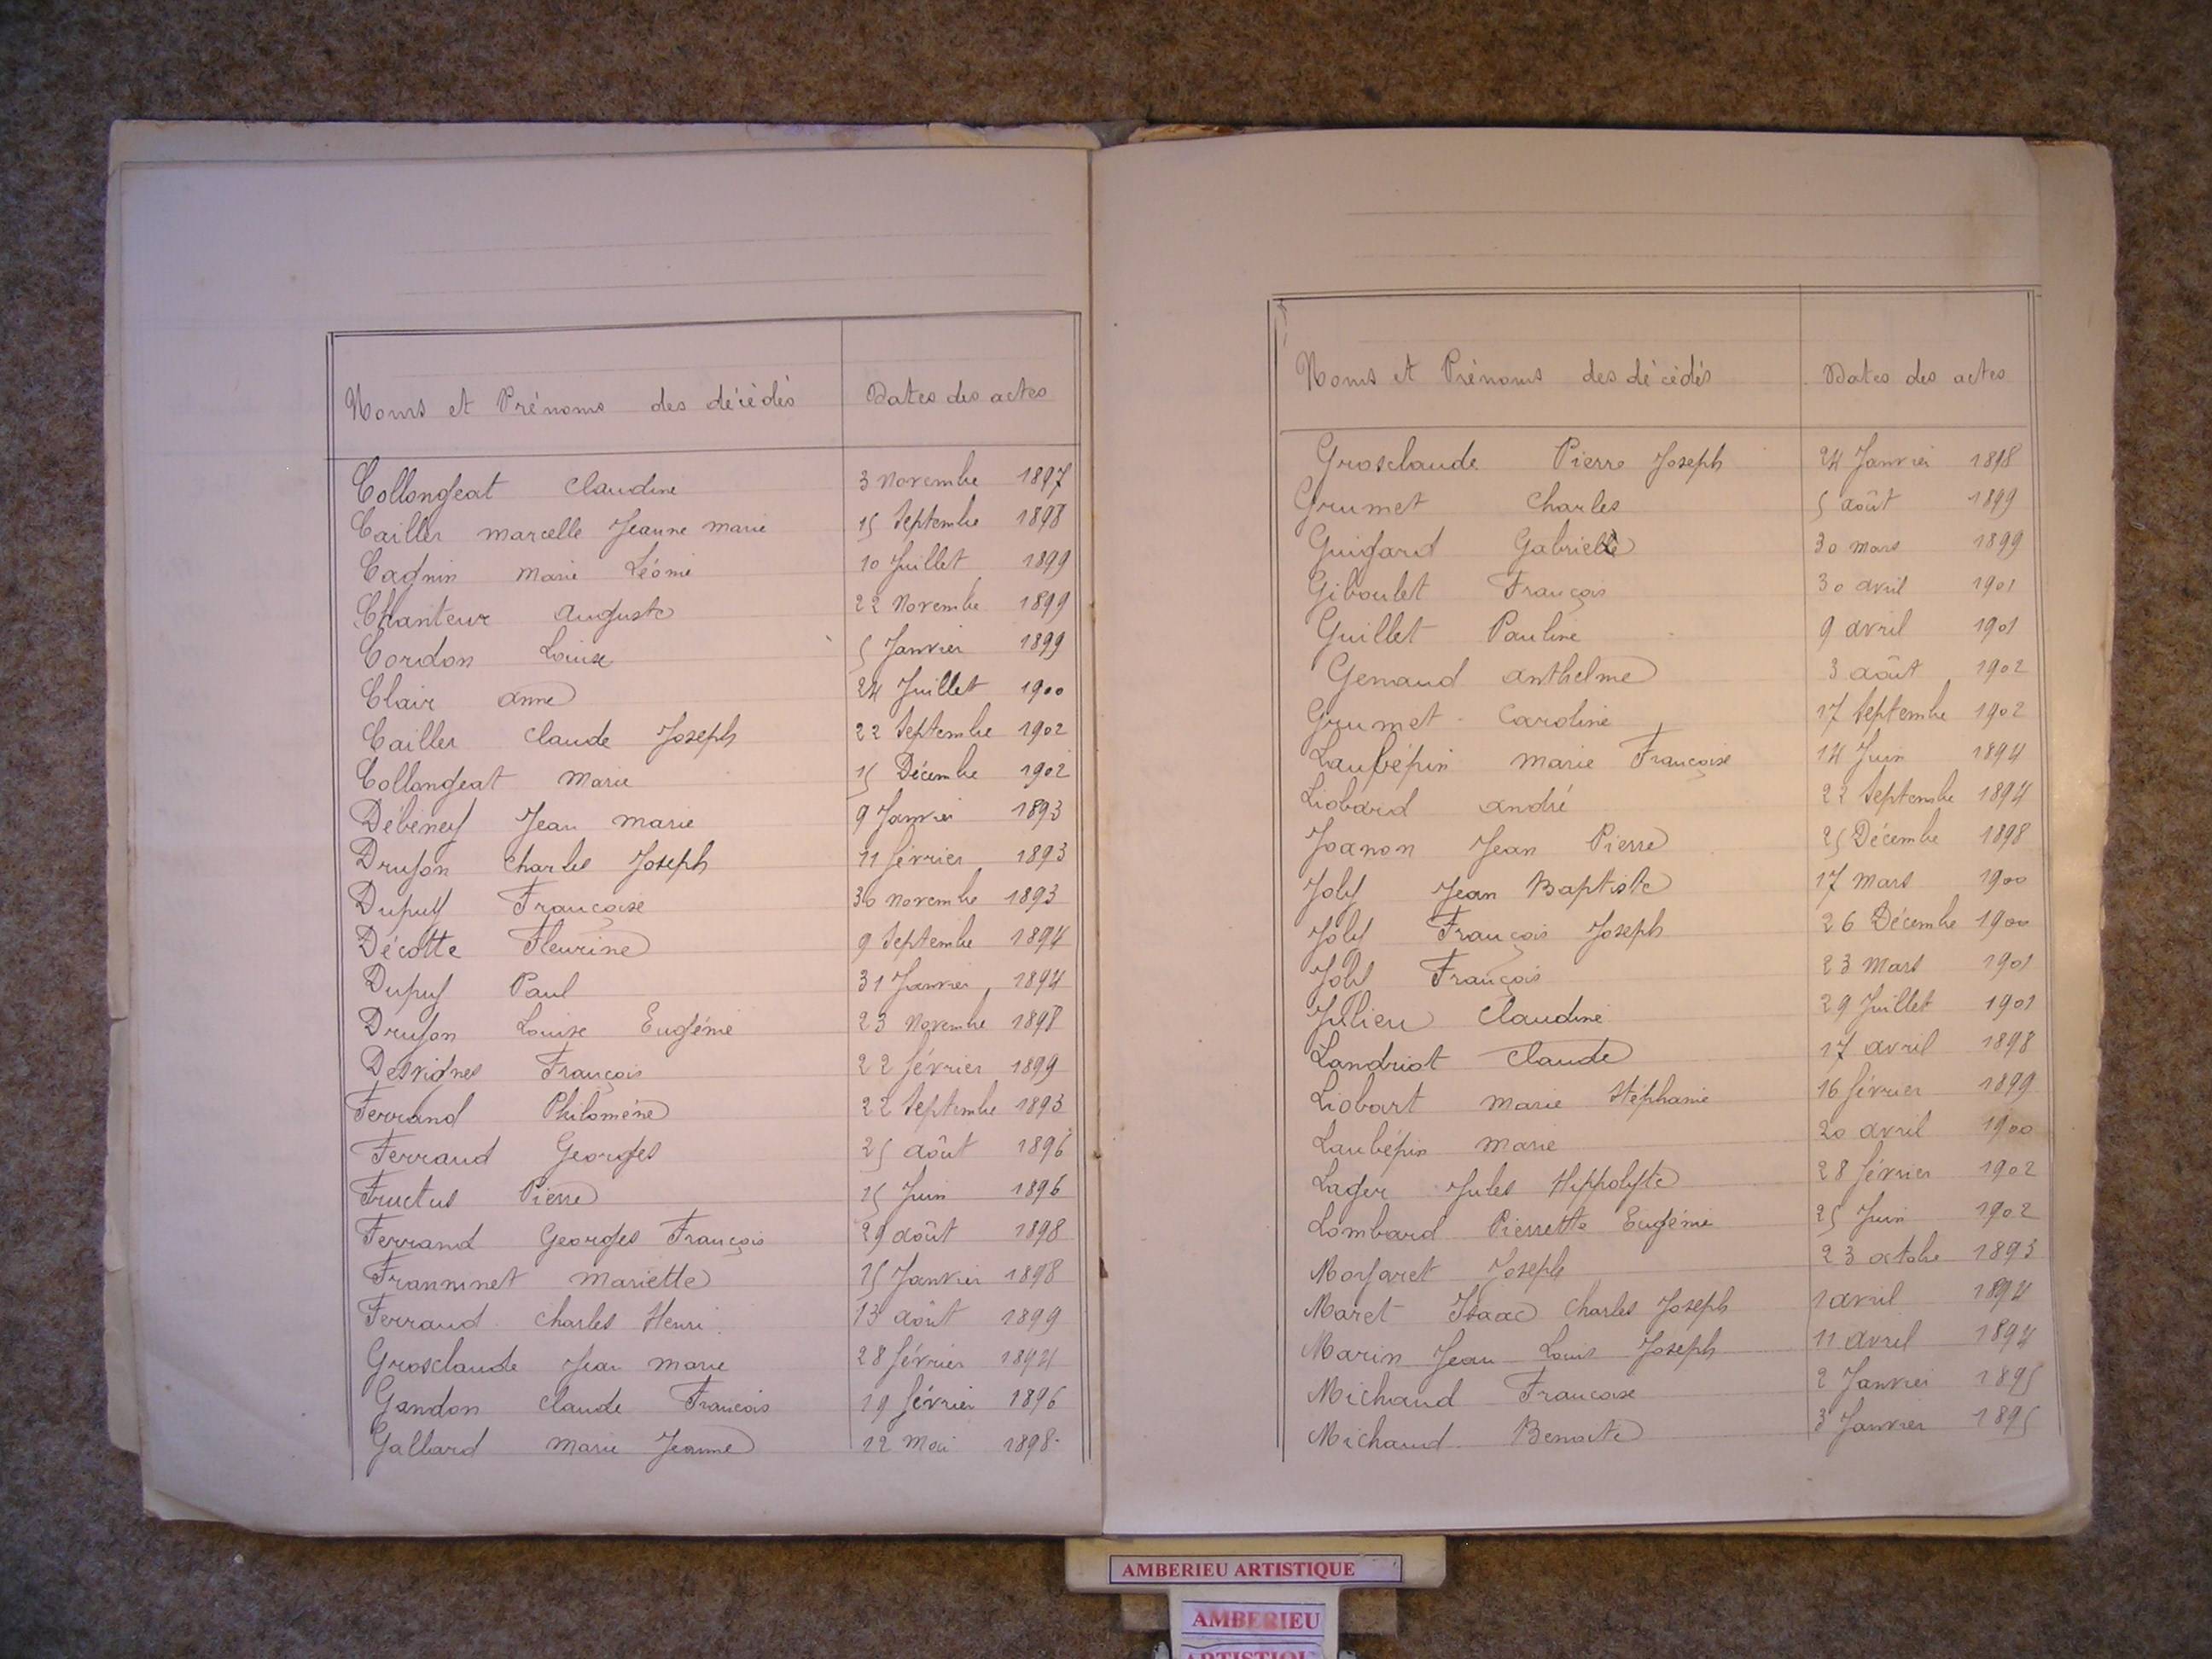 Noms et Prénoms des décédés Dates des actes
Collongeat Claudine 3 novembre 1897
Cailler marcelle Jeanne marie 15 Septembre 1898
Cagnin marie Léonie 10 Juillet 1899
Chanteur auguste 22 Novembre 1899
Cordon Louise 5 Janvier 1899
Clair anne 24 Juillet 1900
Cailler Claude Joseph 22 Septembre 1902
Collongeat Marie 15 Décembre 1902
Débeney Jean marie 9 Janvier 1893
Drujon Charles Joseph 11 février 1893
Dupuy Françoise 30 novembre 1893
Décotte Fleurine 9 Septembre 1894
Dupuy Paul 31 Janvier 1894
Drujon Louise Eugénie 23 Novembre 1898
Desvignes François 22 février 1899
Ferrand Philomène 22 Septembre 1893
Ferraud Georges 25 août 1896
Fructus Pierre 15 Juin 1896
Ferrand Georges François 29 août 1898
Franninet Mariette 15 Janvier 1898
Ferraud Charles Henri 13 août 1899
Grosclaude Jean marie 28 février 1894
Gandon Claude François 19 février 1896
Galland Marie Jeanne 12 Mai 1898
Noms et Prénoms des décédés Dates des actes
Grosclaude Pierre Joseph 24 Janvier 1898
Grumet Charles 5 août 1899
Guigard Gabrielle 30 mars 1899
Giboulet François 30 avril 1901
Guillet Pauline 9 avril 1901
Genaud anthelme 3 août 1902
Grumet Caroline 17 Septembre 1902
Laubépin marie Françoise 14 Juin 1894
Liobard andré 22 Septembre 1894
Joanon Jean Pierre 25 Décembre 1898
Joly Jean Baptiste 17 Mars 1900
Joly François Joseph 26 Décembre 1900
Joly François 23 Mars 1901
Jullien Claudine 29 Juillet 1901
Landriot Claude 17 avril 1898
Liobart marie Stéphanie 16 février 1899
Laubépin marie 20 avril 1900
Lager Jules Hippolyte 28 février 1902
Lombard Pierrette Eugénie 25 Juin 1902
Morgaret Joseph 23 octobre 1893
Maret Isaac Charles Joseph 1 avril 1894
Marin Jean Louis Joseph 11 avril 1894
Michaud Francoise 2 Janvier 1895
Michaud Benoite 3 Janvier 1895
AMBERIEU ARTISTIQUE
AMBERIEU